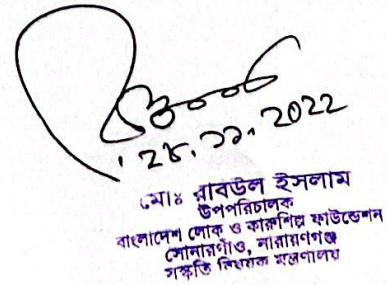 ২৪.১১.2022
মোঃ রবিউল ইসলাম
উপপরিচালক
বাংলাদেশ লোক ও কারুশিল্প ফাউন্ডেশন
সোনারগাঁও, নারায়ণগঞ্জ
সংস্কৃতি বিষয়ক মন্ত্রণালয়